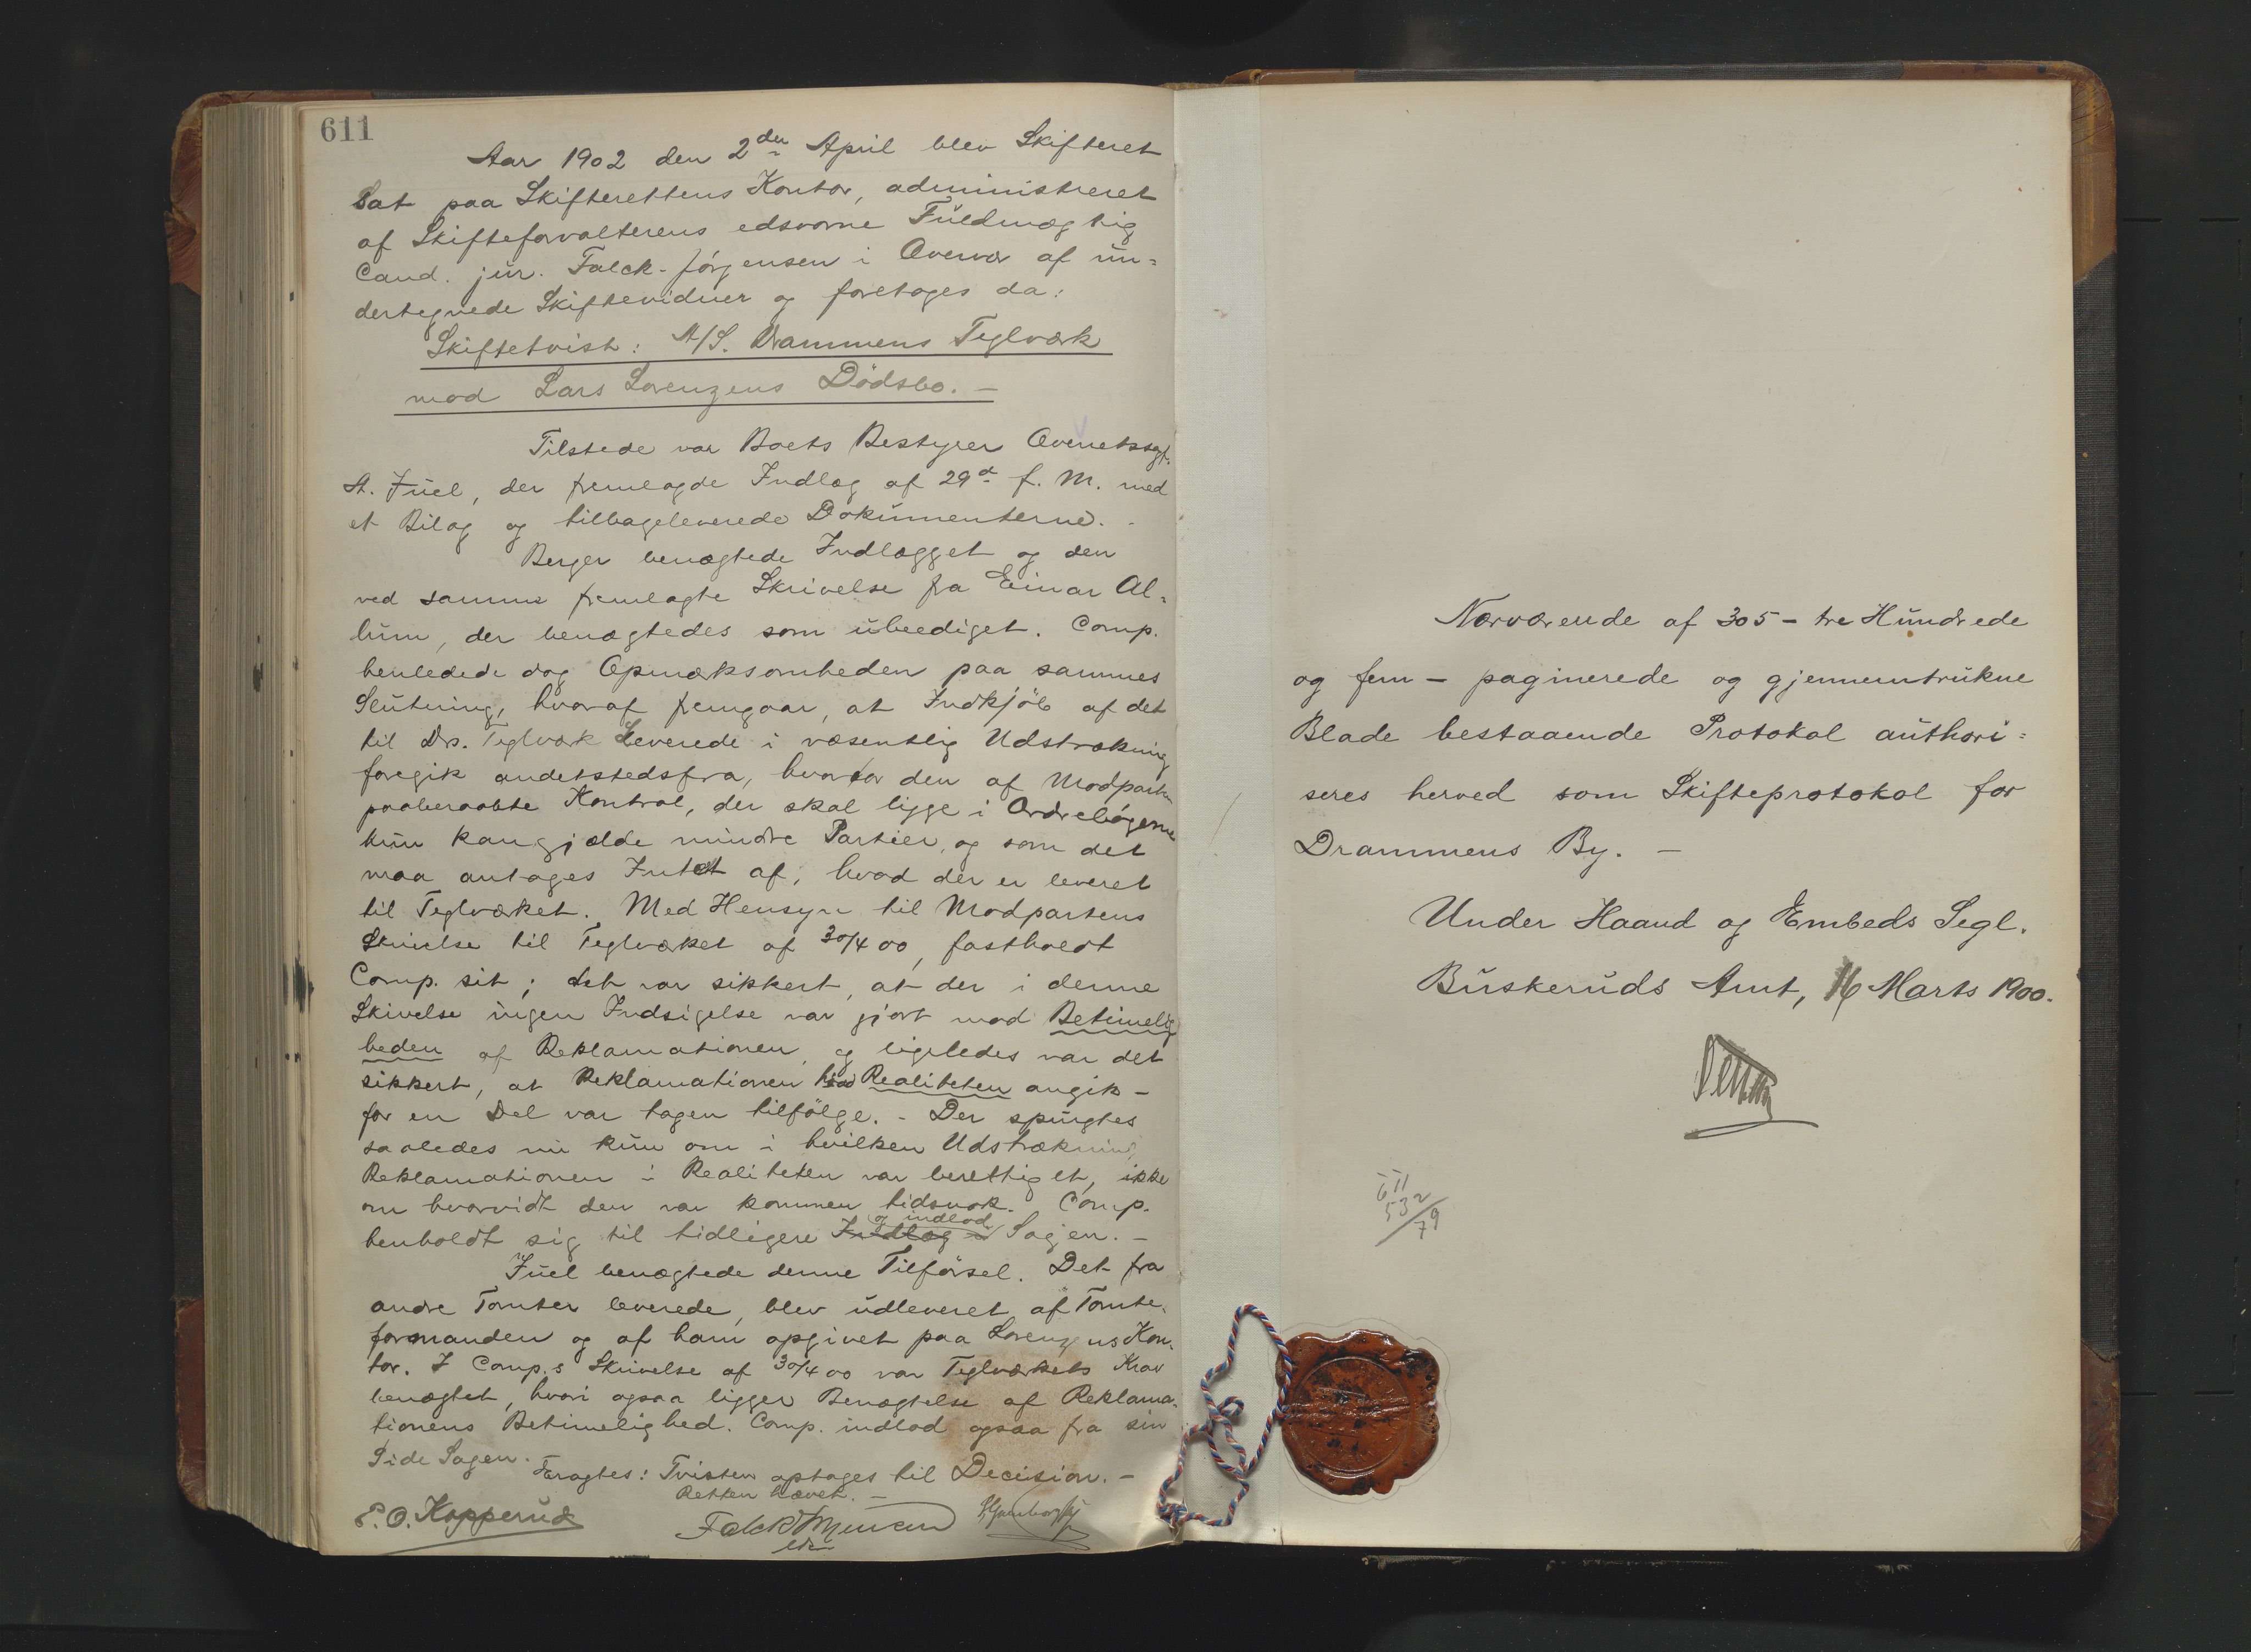 611
Aar 1902 den 2den April blev Skifteret
sat paa Skifterettens Kontor, administreret
af Skifteforvalterens edsvorne Fuldmægtig
Cand. jur. Falck-Jörgensen i Overvær af un=
dertegnede Skiftevidner og foretoges da:
Skiftetvist: A/S. Drammens Teglværk
mod Lars Lorenzens Dödsbo. —
Tilstede var Boets Bestyrer Overretssagf.
A. Juel, der fremlagde Indlæg af 29d f. M. med
et Bilag og tilbageleverede Dokumenterne. -
Berger benægtede Indlægget og den
ved samme fremlagte Skrivelse fra Einar Al=
bum, der benægtedes som ubeediget. Comp.
henledede dog Opmærksomheden paa sammes
Slutning, hvoraf fremgaar, at Indkjöb af det
til Drs. Teglværk leverede i væsentlig Udstrækning
foregik andetstedsfra, hvorfor den af Modparten
paaberaabte Kontrol, der skal ligge i Ordrebögerne
kun kan gjælde mindre Partier, og som det
maa antages Intet af, hvad der er leveret
til Teglværket. Med Hensyn til Modpartens
Skrivelse til Teglværket af 30/4 00, fastholdt
Comp. sit; det var sikkert, at der i denne
Skivelse ingen Indsigelse var gjort mod Betimelig
heden af Reklamationen, og ligeledes var det
sikkert, at Reklamationen hvad Realiteten angik -
for en Del var tagen tilfölge. - Der spurgtes
saaledes nu kun om i hvilken Udstrækning
Reklamationen i Realiteten var berettiget, ikke
om hvorvidt den var kommen tidsnok. Comp.
henholdt sig til tidligere Indlæg og indlod Sagen. -
Juel benægtede denne Tilförsel. Det fra
andre Tomter leverede, blev udleveret af Tomte=
formanden og af ham opgivet paa Lorenzens Kon=
tor. I Comp.s Skrivelse af 30/4 00 var Teglværkets Krav
benægtet, hvori ogsaa ligger Benægtelse af Reklama=
tionens Betimelighed. Comp. indlod ogsaa fra sin
Side Sagen.
Eragtes: Tvisten optages til Decision. -
Retten hævet. -
E. O. Kopperud Falck Jörgensen
Nærværende af 305 - tre Hundrede
og fem - paginerede og gjennemtrukne
Blade bestaaende Protokol authori=
seres herved som Skifteprotokol for
Drammens By. —
Under Haand og Embeds Segl.
Buskeruds Amt, 16 Marts 1900.
611
532
79